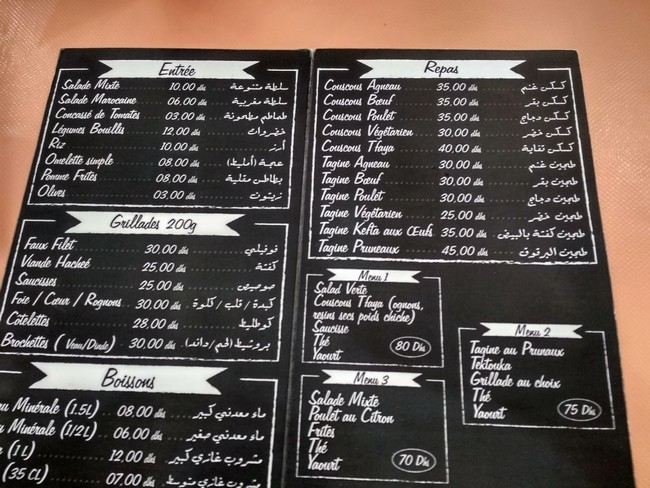 Entrée
Salade Mixte 10.00 dhs سلطة متنوعة
Salade Marocaine 06.00 dhs سلطة مغربية
Concassé de Tomates 03.00 dhs طماطم مطحونة
Légumes Bouillis 12.00 dhs خضروات
Riz 10.00 dhs أرز
Omelette simple 08.00 dhs عجة (أمليط)
Pomme Frites 08.00 dhs بطاطس مقلية
Olives 03.00 dhs زيتون
Grillades 200g
Faux Filet 30.00 dhs فوفيلي
Viande Hacheé 25.00 dhs كفتة
Saucisses 25.00 dhs صوصيص
Foie / Cœur / Rognons 30.00 dhs كبدة / قلب / كلوة
Côtelettes 28.00 dhs كوطليط
Brochettes (Veau/Dinde) 30.00 dhs بروشيط (لحم/داند)
Boissons
Minérale (1.5L) 08.00 dhs ماء معدني كبير
Minérale (1/2L) 06.00 dhs ماء معدني صغير
(1 L) 12.00 dhs مشروب غازي كبير
(35 CL) 07.00 dhs مشروب غازي متوسط
Repas
Couscous Agneau 35.00 dhs كسكس غنم
Couscous Bœuf 35.00 dhs كسكس بقر
Couscous Poulet 35.00 dhs كسكس دجاج
Couscous Végétarien 30.00 dhs كسكس خضر
Couscous Tfaya 40.00 dhs كسكس تفاية
Tagine Agneau 30.00 dhs طجين غنم
Tagine Bœuf 30.00 dhs طجين بقر
Tagine Poulet 30.00 dhs طجين دجاج
Tagine Végétarien 25.00 dhs طجين خضر
Tagine Kefta aux Œufs 35.00 dhs طجين كفتة بالبيض
Tagine Pruneaux 45.00 dhs طجين البرقوق
Menu 1
Salad Verte
Couscous Tfaya (ognons,
resins secs poids chiche)
Saucisse
Thé
Yaourt
80 Dhs
Menu 2
Tagine au Prunaux
Tektouka
Grillade au choix
Thé
Yaourt
75 Dhs
Menu 3
Salade Mixte
Poulet au Citron
Frites
Thé
Yaourt
70 Dhs